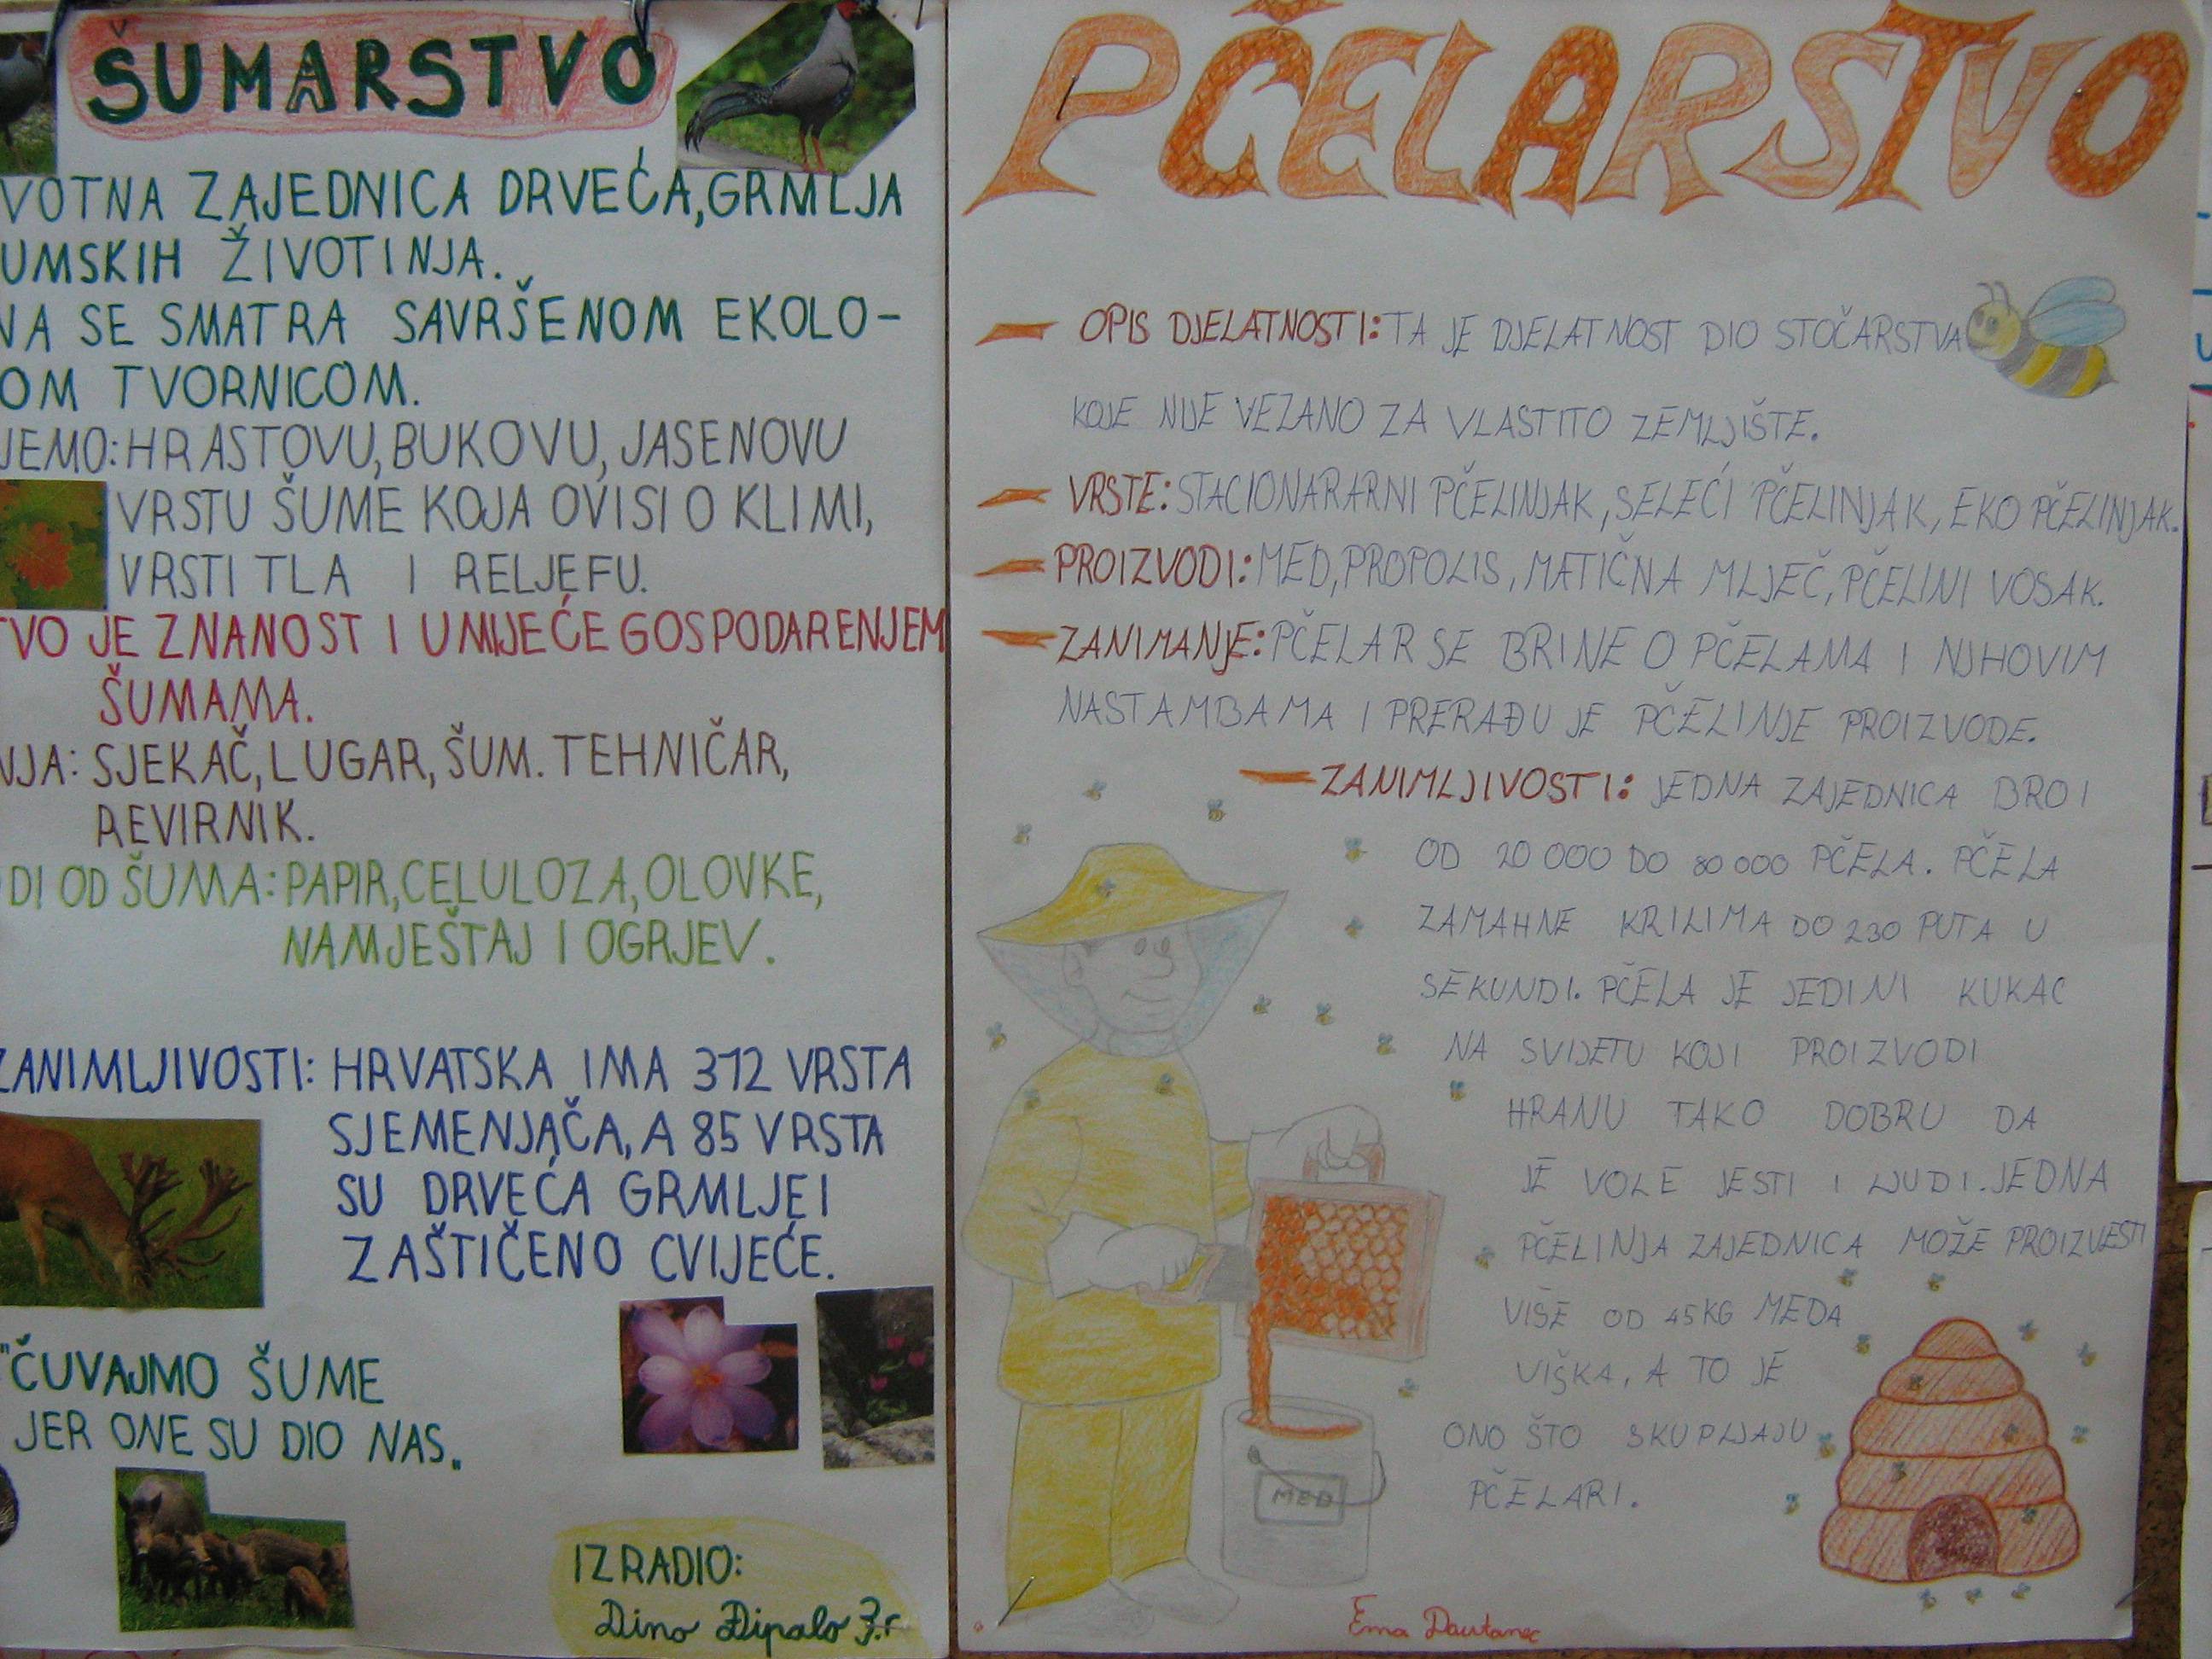 ŠUMARSTVO
VOTNA ZAJEDNICA DRVEĆA, GRMLJA
UMSKIH ŽIVOTINJA.
NA SE SMATRA SAVRŠENOM EKOLO-
OM TVORNICOM.
JEMO: HRASTOVU, BUKOVU, JASENOVU
VRSTU ŠUME KOJA OVISI O KLIMI,
VRSTI TLA I RELJEFU.
TVO JE ZNANOST I UMIJEĆE GOSPODARENJEM
ŠUMAMA.
NJA: SJEKAČ, LUGAR, ŠUM. TEHNIČAR,
REVIRNIK.
DI OD ŠUMA: PAPIR, CELULOZA, OLOVKE,
NAMJEŠTAJ I OGRJEV.
ZANIMLJIVOSTI: HRVATSKA IMA 312 VRSTA
SJEMENJAČA, A 85 VRSTA
SU DRVEĆA GRMLJE I
ZAŠTIČENO CVIJEĆE.
"ČUVAJMO ŠUME
JER ONE SU DIO NAS.
IZRADIO:
Dino Đipalo 3.r
PČELARSTVO
- OPIS DJELATNOSTI: TA JE DJELATNOST DIO STOČARSTVA
KOJE NIJE VEZANO ZA VLASTITO ZEMLJIŠTE.
- VRSTE: STACIONARARNI PČELINJAK, SELEĆI PČELINJAK, EKO PČELINJAK.
- PROIZVODI: MED, PROPOLIS, MATIČNA MLJEČ, PČELINI VOSAK.
- ZANIMANJE: PČELAR SE BRINE O PČELAMA I NJIHOVIM
NASTAMBAMA I PRERAĐUJE PČELINJE PROIZVODE.
- ZANIMLJIVOSTI: JEDNA ZAJEDNICA BROI
OD 20 000 DO 80 000 PČELA. PČELA
ZAMAHNE KRILIMA DO 230 PUTA U
SEKUNDI. PČELA JE JEDINI KUKAC
NA SVIJETU KOJI PROIZVODI
HRANU TAKO DOBRU DA
JE VOLE JESTI I LJUDI. JEDNA
PČELINJA ZAJEDNICA MOŽE PROIZVESTI
VIŠE OD 45KG MEDA
VIŠKA, A TO JE
ONO ŠTO SKUPLJAJU
PČELARI.
MED
Ema Dautanec